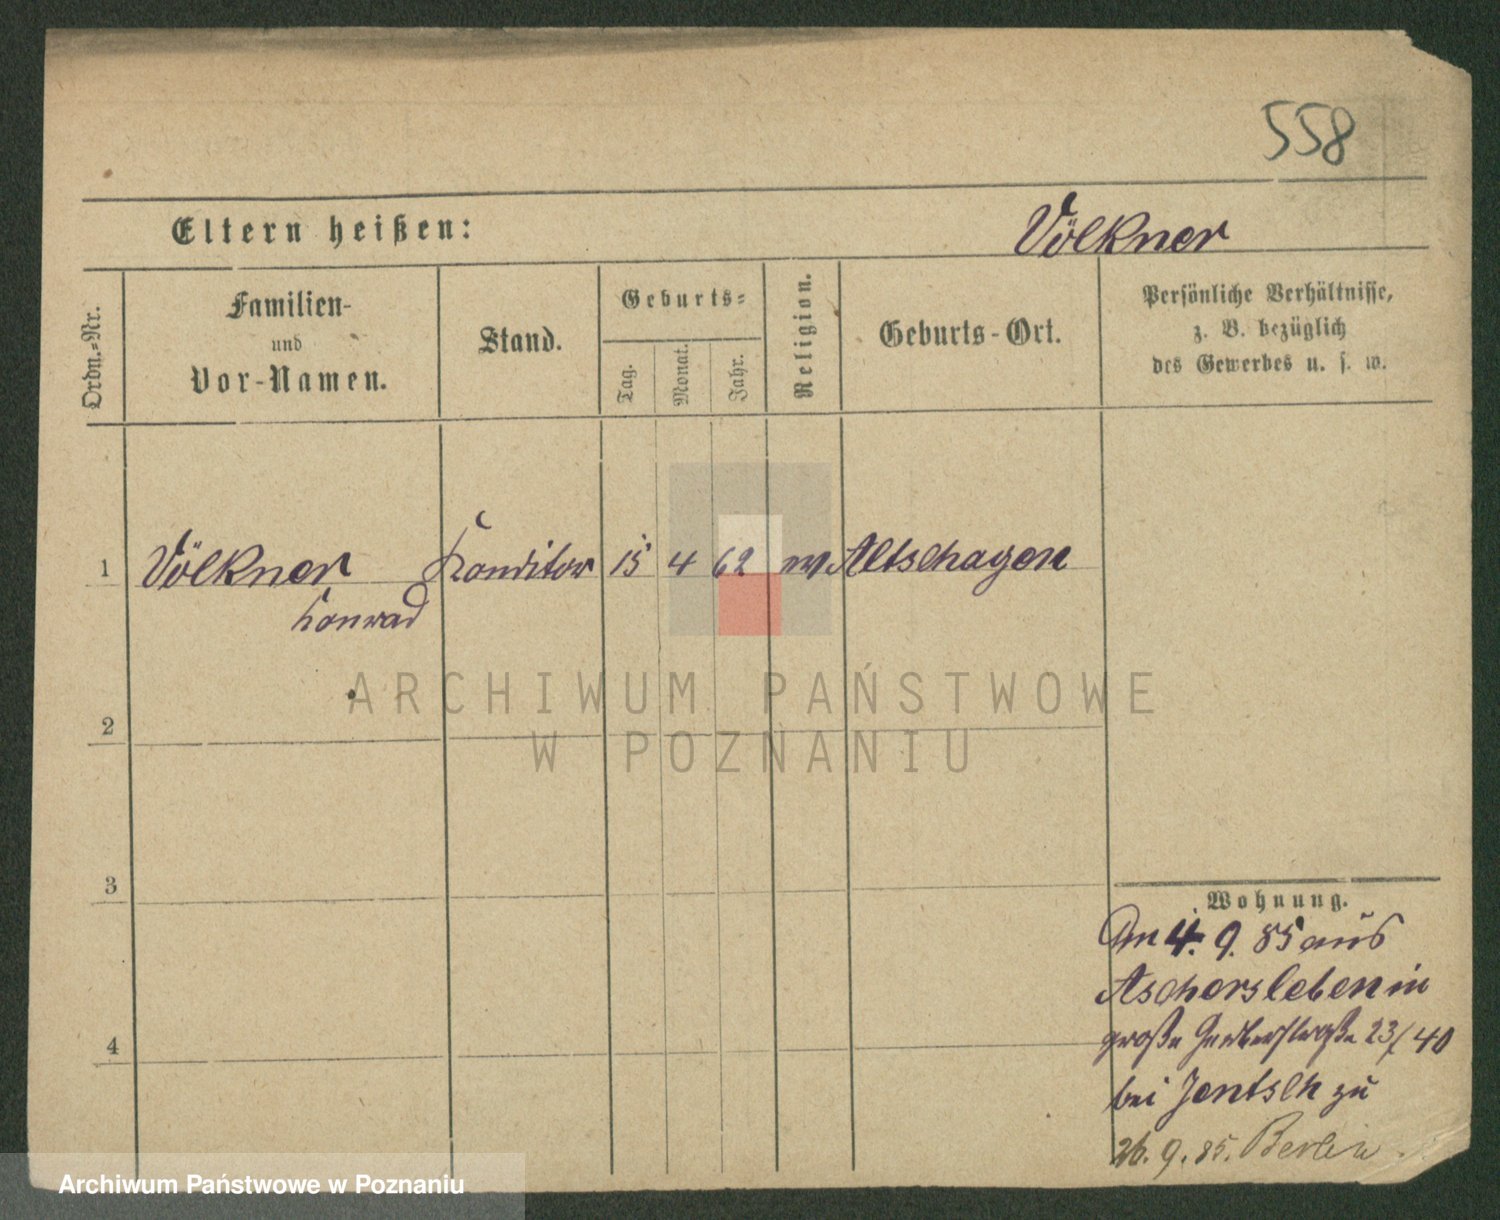 558
Eltern heißen:
Völkner
Ordn.-Nr.
Familien-
und
Vor-Namen.
Stand.
Geburts-
Tag.
Monat.
Jahr.
Religion.
Geburts-Ort.
Persönliche Verhältnisse,
z. B. bezüglich
des Gewerbes u. s. w.
1 Völkner Konditor 15 4 62 ev Altschagen
Konrad
ARCHIWUM PAŃSTWOWE
W POZNANIU
2
3
4
Wohnung.
Am 4. 9. 85 aus
Aschersleben in
große Gerberstraße 23/40
bei Jentsch zu
26. 9. 85. Berlin.
Archiwum Państwowe w Poznaniu